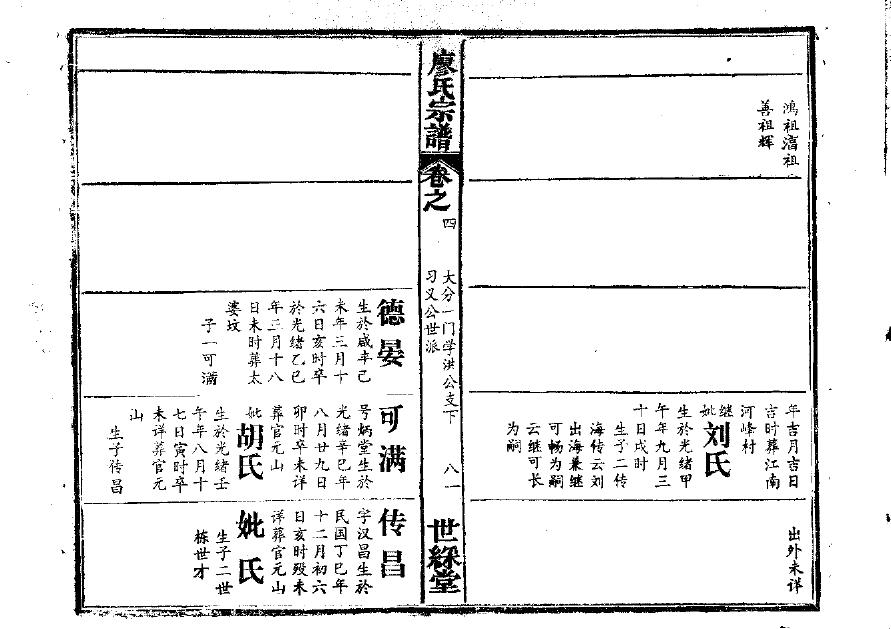 鸿祖滀祖
善祖辉
年吉月吉日
吉时葬江南
河峰村
继妣刘氏
生於光绪甲
午年九月三
十日戌时
生子二传
海传云刘
出海兼继
可畅为嗣
云继可长
为嗣
出外未详
廖氏宗譜
卷之四
大分一门学洪公支下
习义公世派
八一
世綵堂
德晏
生於咸辛己
未年三月十
六日亥时卒
於光绪乙巳
年三月十八
日未时葬太
婆坟
子一可满
可满
号炳堂生於
光绪辛巳年
八月廿九日
卯时卒未详
葬官元山
妣胡氏
生於光绪壬
午年八月十
七日寅时卒
未详葬官元
山
生子传昌
传昌
字汉昌生於
民国丁巳年
十二月初六
日亥时殁未
详葬官元山
妣氏
生子二世
栋世才